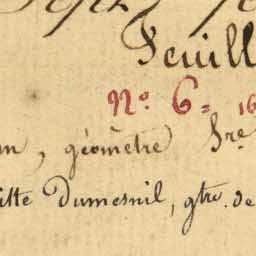 Feuill
No. 6= 16
n, géomètre Sre
itte Dumesnil, gtre. de